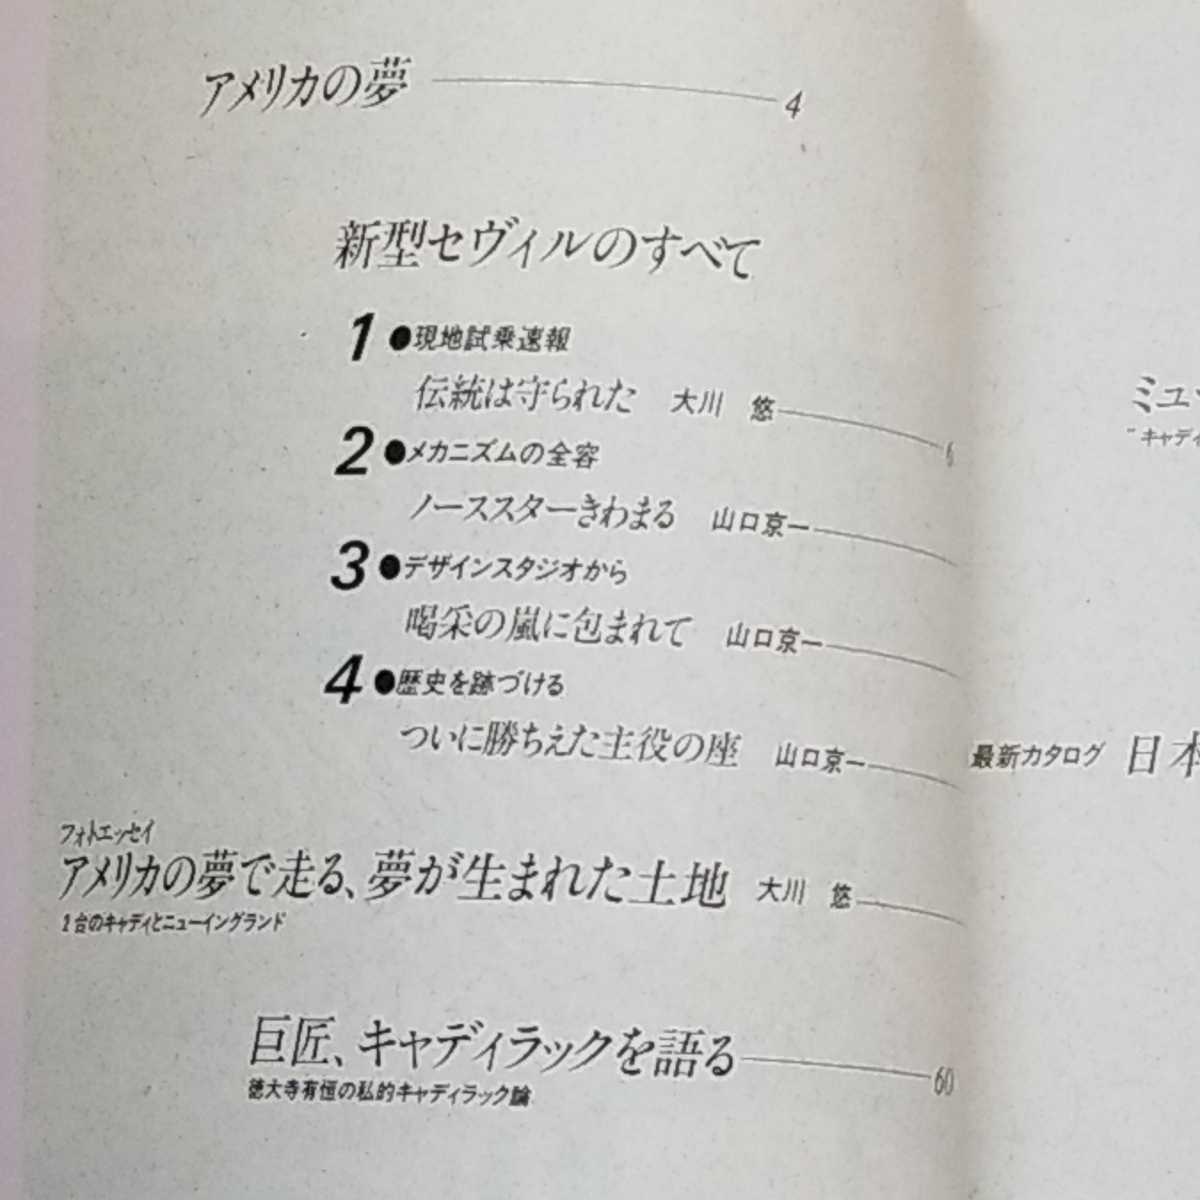 アメリカの夢 4
新型セヴィルのすべて
1●現地試乗速報
伝統は守られた 大川 悠 6
2●メカニズムの全容
ノーススターきわまる 山口京一
3●デザインスタジオから
喝采の嵐に包まれて 山口京一
4●歴史を跡づける
ついに勝ちえた主役の座 山口京一
フォトエッセイ
アメリカの夢で走る、夢が生まれた土地 大川 悠
1台のキャディとニューイングランド
巨匠、キャディラックを語る 60
徳大寺有恒の私的キャディラック論
ミュ
"キャディ
最新カタログ 日本